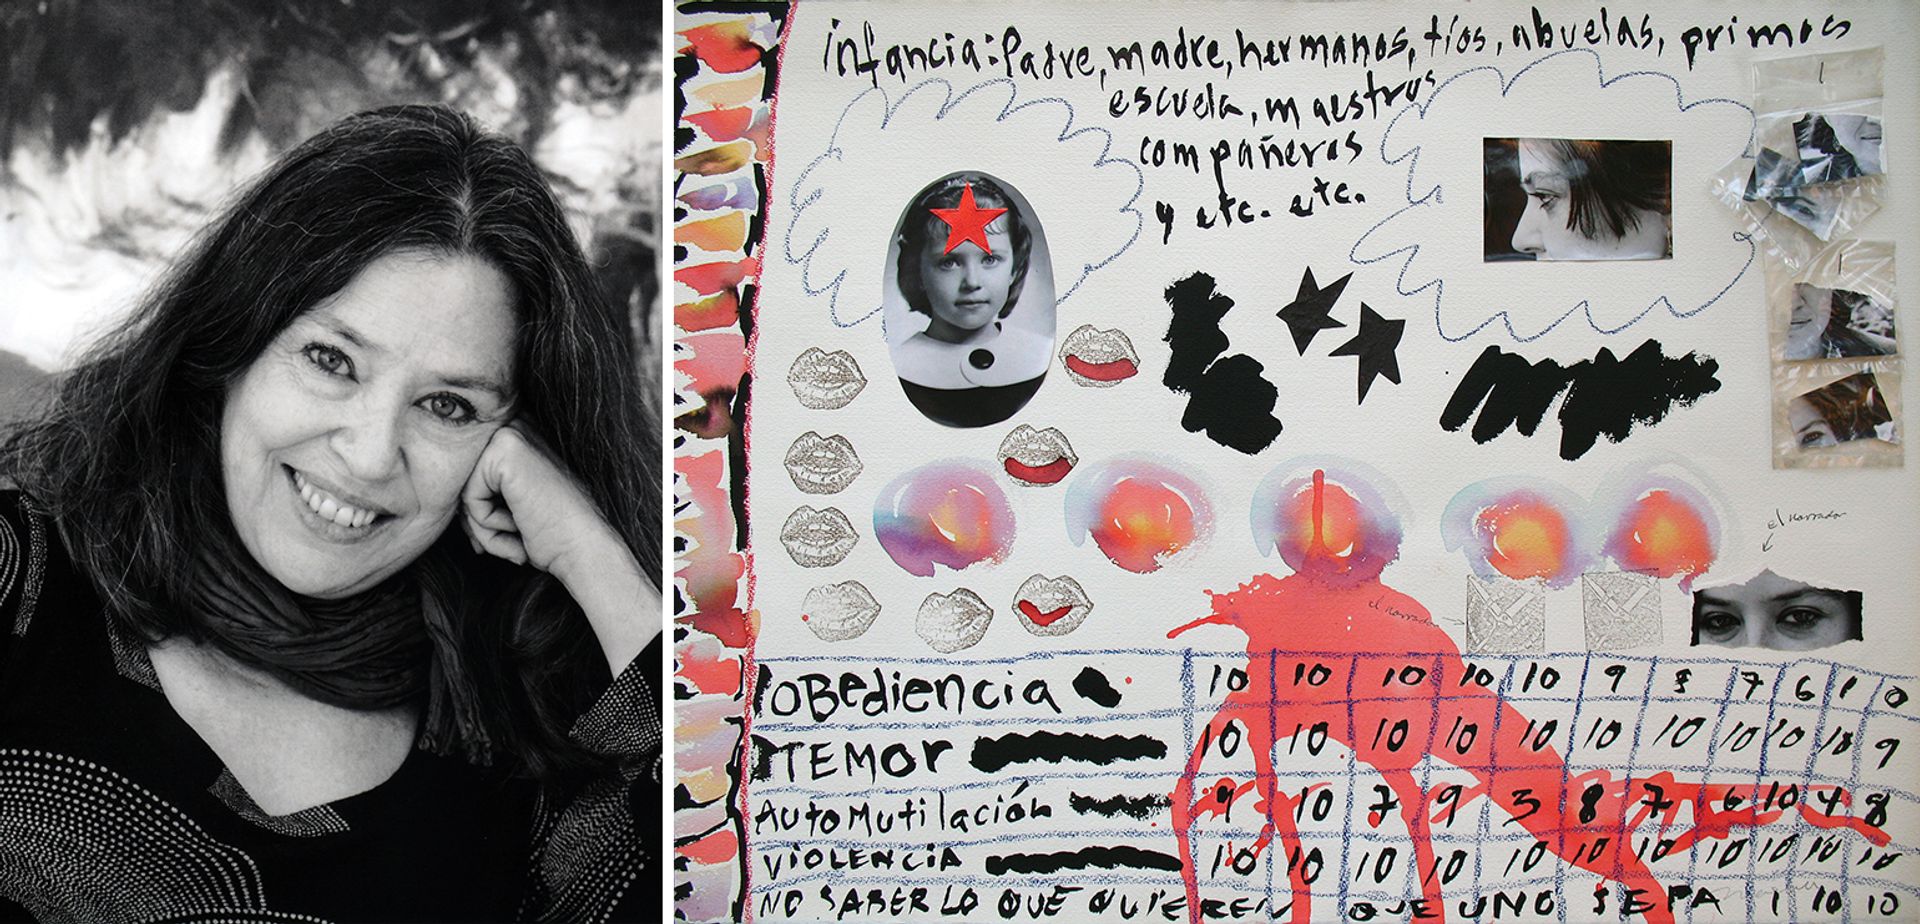 infancia: Padre, madre, hermanos, tíos, abuelas, primos
escuela, maestros
compañeros
y etc. etc.
1
1
el narrador
el narrador
OBediencia 10 10 10 10 10 9 8 7 6 1 0
TEMOR 10 10 10 10 10 10 10 10 10 10 9
AutoMutilación 9 10 7 9 3 8 7 6 10 4 8
VIOLENCIA 10 10 10 10 10 10 10 10 10 10 10
NO SABER LO QUE QUIEREN QUE UNO SEPA 1 10 10